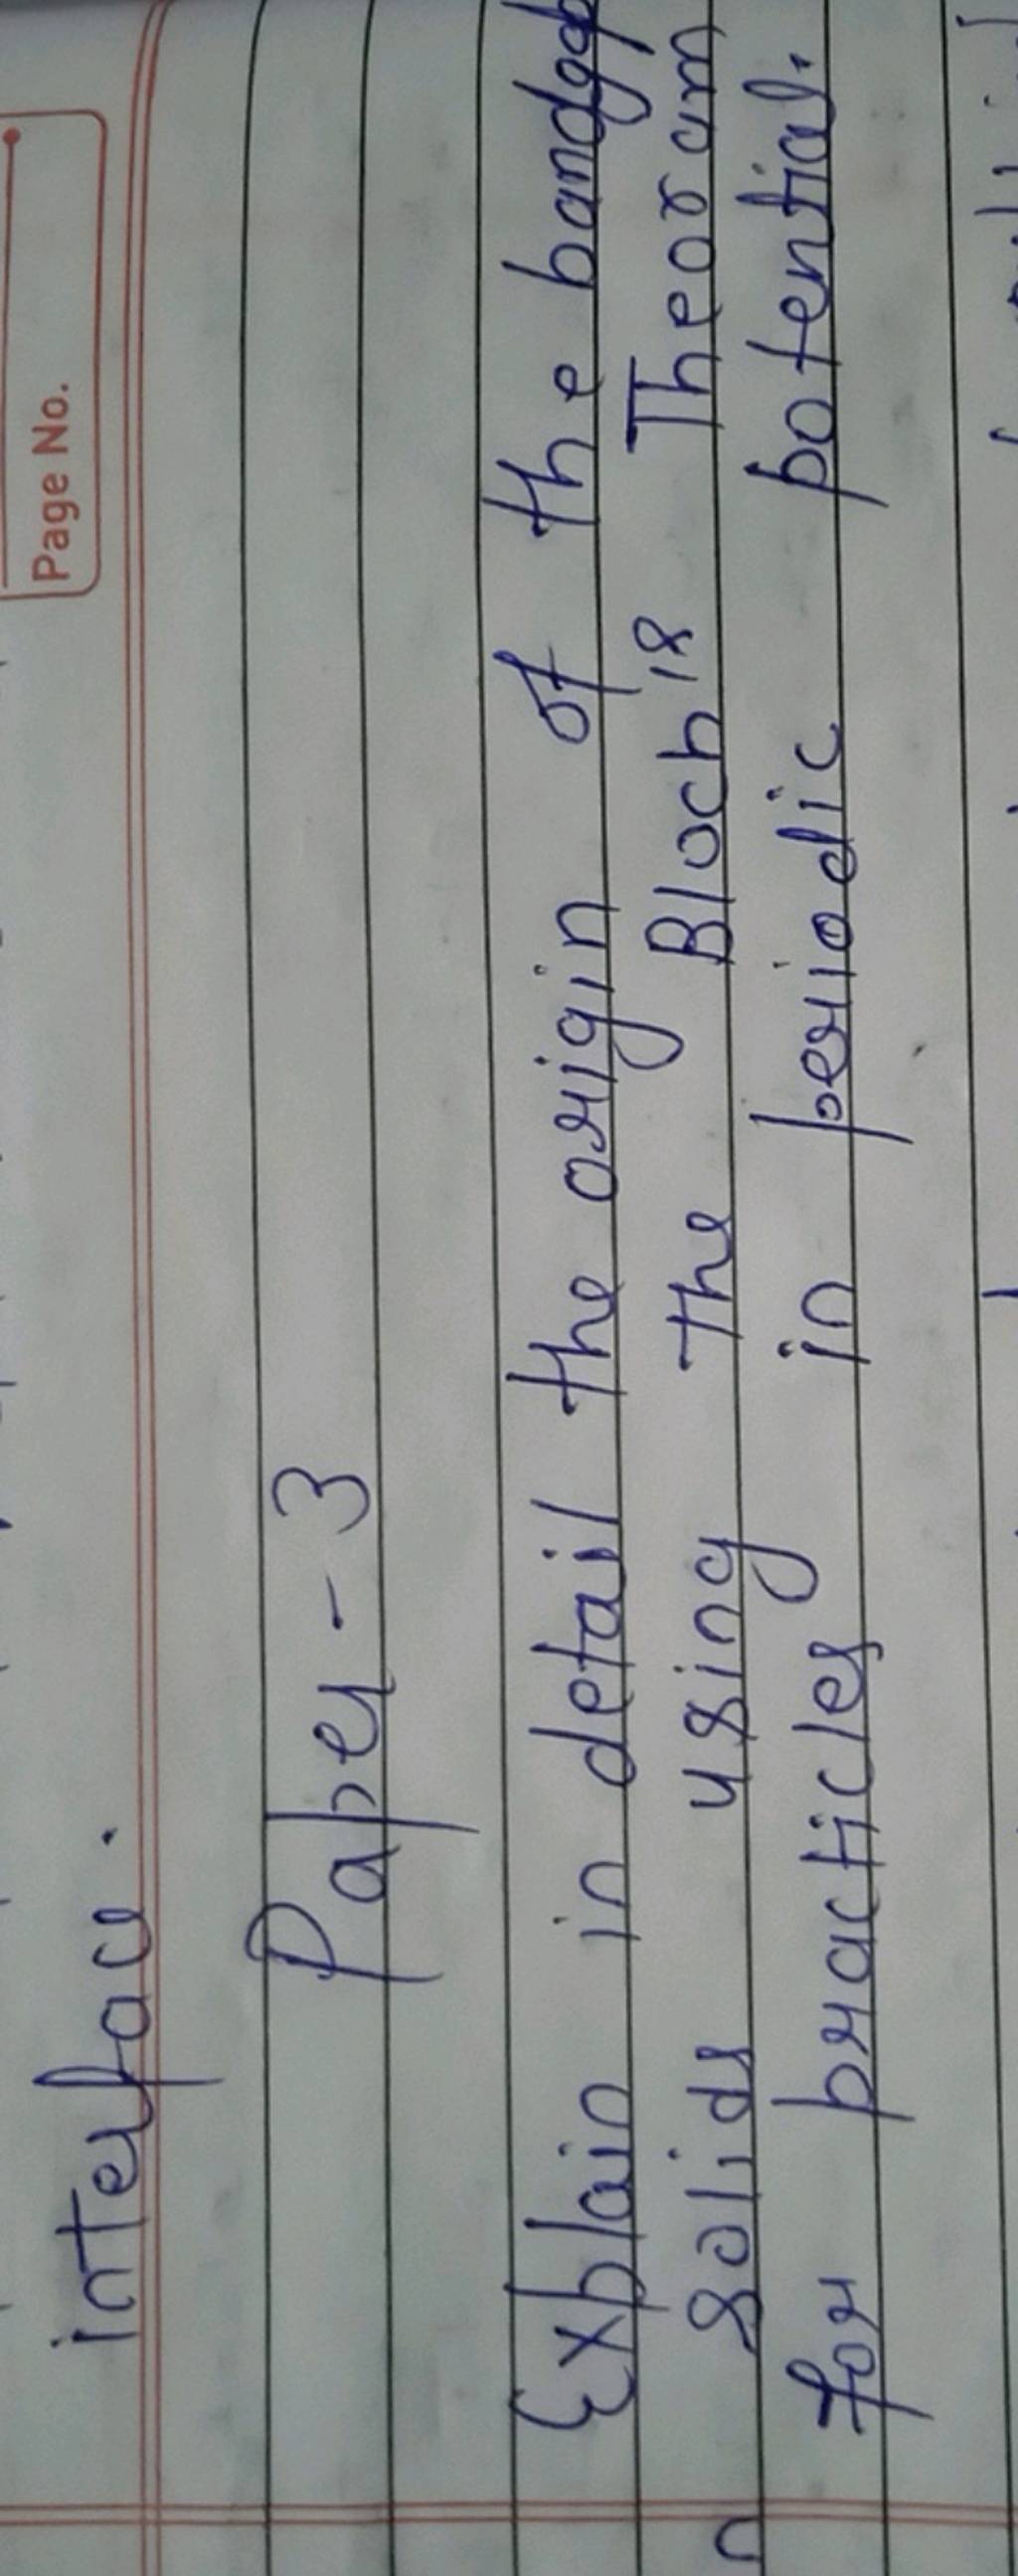 Page No.
interface.
Paper - 3
Explain in detail the origin of the bandgap
n solids using the Bloch's Theoram
for practicles in periodic potential.